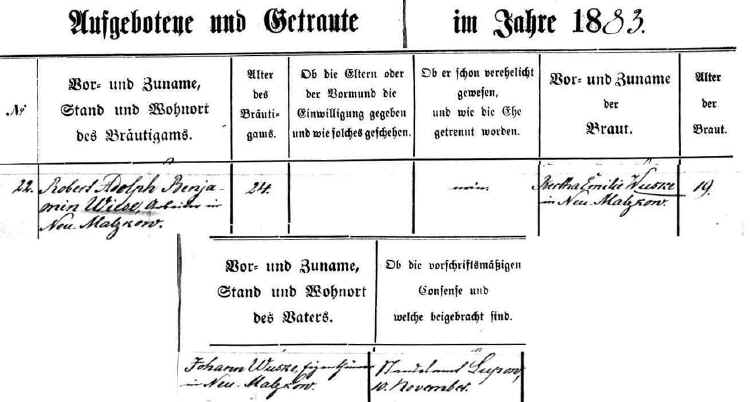 Aufgebotene und Getraute im Jahre 1883.
Nº
Vor- und Zuname,
Stand und Wohnort
des Bräutigams.
Alter
des
Bräuti-
gams.
Ob die Eltern oder
der Vormund die
Einwilligung gegeben
und wie solches geschehen.
Ob er schon verehelicht
gewesen,
und wie die Ehe
getrennt worden.
Vor- und Zuname
der
Braut.
Alter
der
Braut.
22.
Robert Adolph Benja-
min Wilse, Arbeiter in
Neu-Malzkow.
24.
nein.
Bertha Emilie Wuske
in Neu-Malzkow.
19.
Vor- und Zuname,
Stand und Wohnort
des Vaters.
Ob die vorschriftsmäßigen
Consense und
welche beigebracht sind.
Johann Wuske, Eigenthümer
in Neu-Malzkow.
Standesamt Lupow,
10. November.